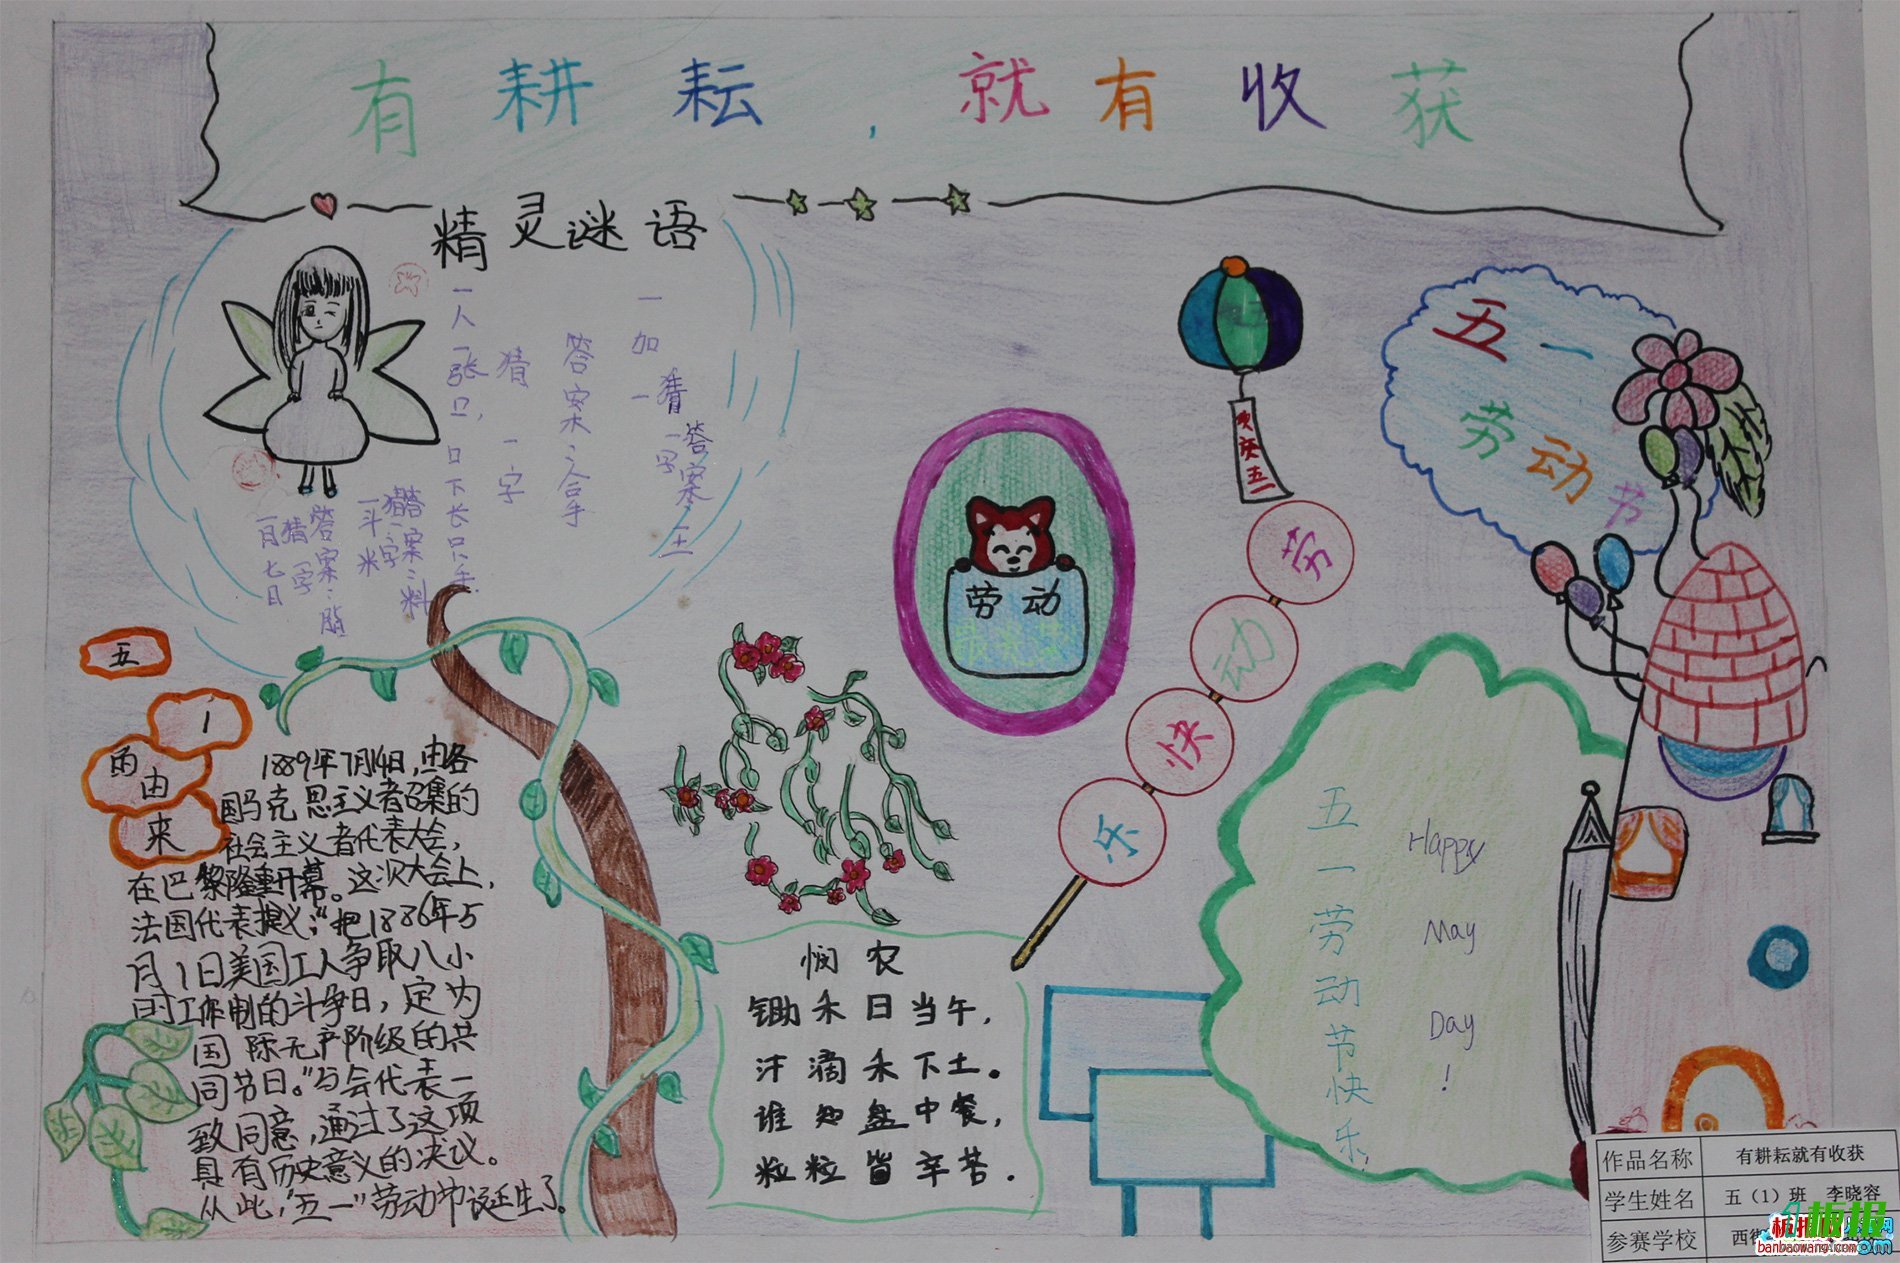 有耕耘，就有收获
精灵谜语
一人一张口，口下长只手
猜一字
答案：合手
一加一
猜一字
答案：王
一斗米
猜一字
答案：料
一月七日
猜一字
答案：脂
五一劳动节
五一
劳动
劳动快乐
五
1
的由来
1889年7月14日，由各
国马克思主义者召集的
社会主义者代表大会，
在巴黎隆重开幕。这次大会上，
法国代表提议：“把1886年5
月1日美国工人争取八小
时工作制的斗争日，定为
国际无产阶级的共
同节日。”与会代表一
致同意，通过了这项
具有历史意义的决议。
从此，“五一”劳动节诞生了。
悯农
锄禾日当午，
汗滴禾下土。
谁知盘中餐，
粒粒皆辛苦.
五一劳动节快乐
Happy
May
Day
!
作品名称 有耕耘就有收获
学生姓名 五（1）班 李晓容
参赛学校 西街
板报
banbaowang.com